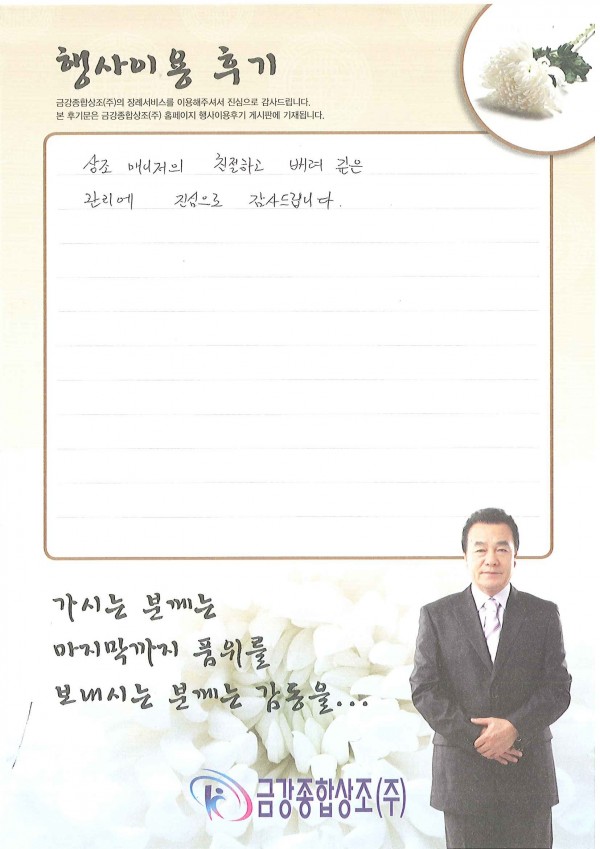 행사이용 후기
금강종합상조(주)의 장례서비스를 이용해주셔서 진심으로 감사드립니다.
본 후기문은 금강종합상조(주) 홈페이지 행사이용후기 게시판에 기재됩니다.
상조 매니저의 친절하고 배려 깊은
관리에 진심으로 감사드립니다.
가시는 분께는
마지막까지 품위를
보내시는 분께는 감동을...
금강종합상조(주)